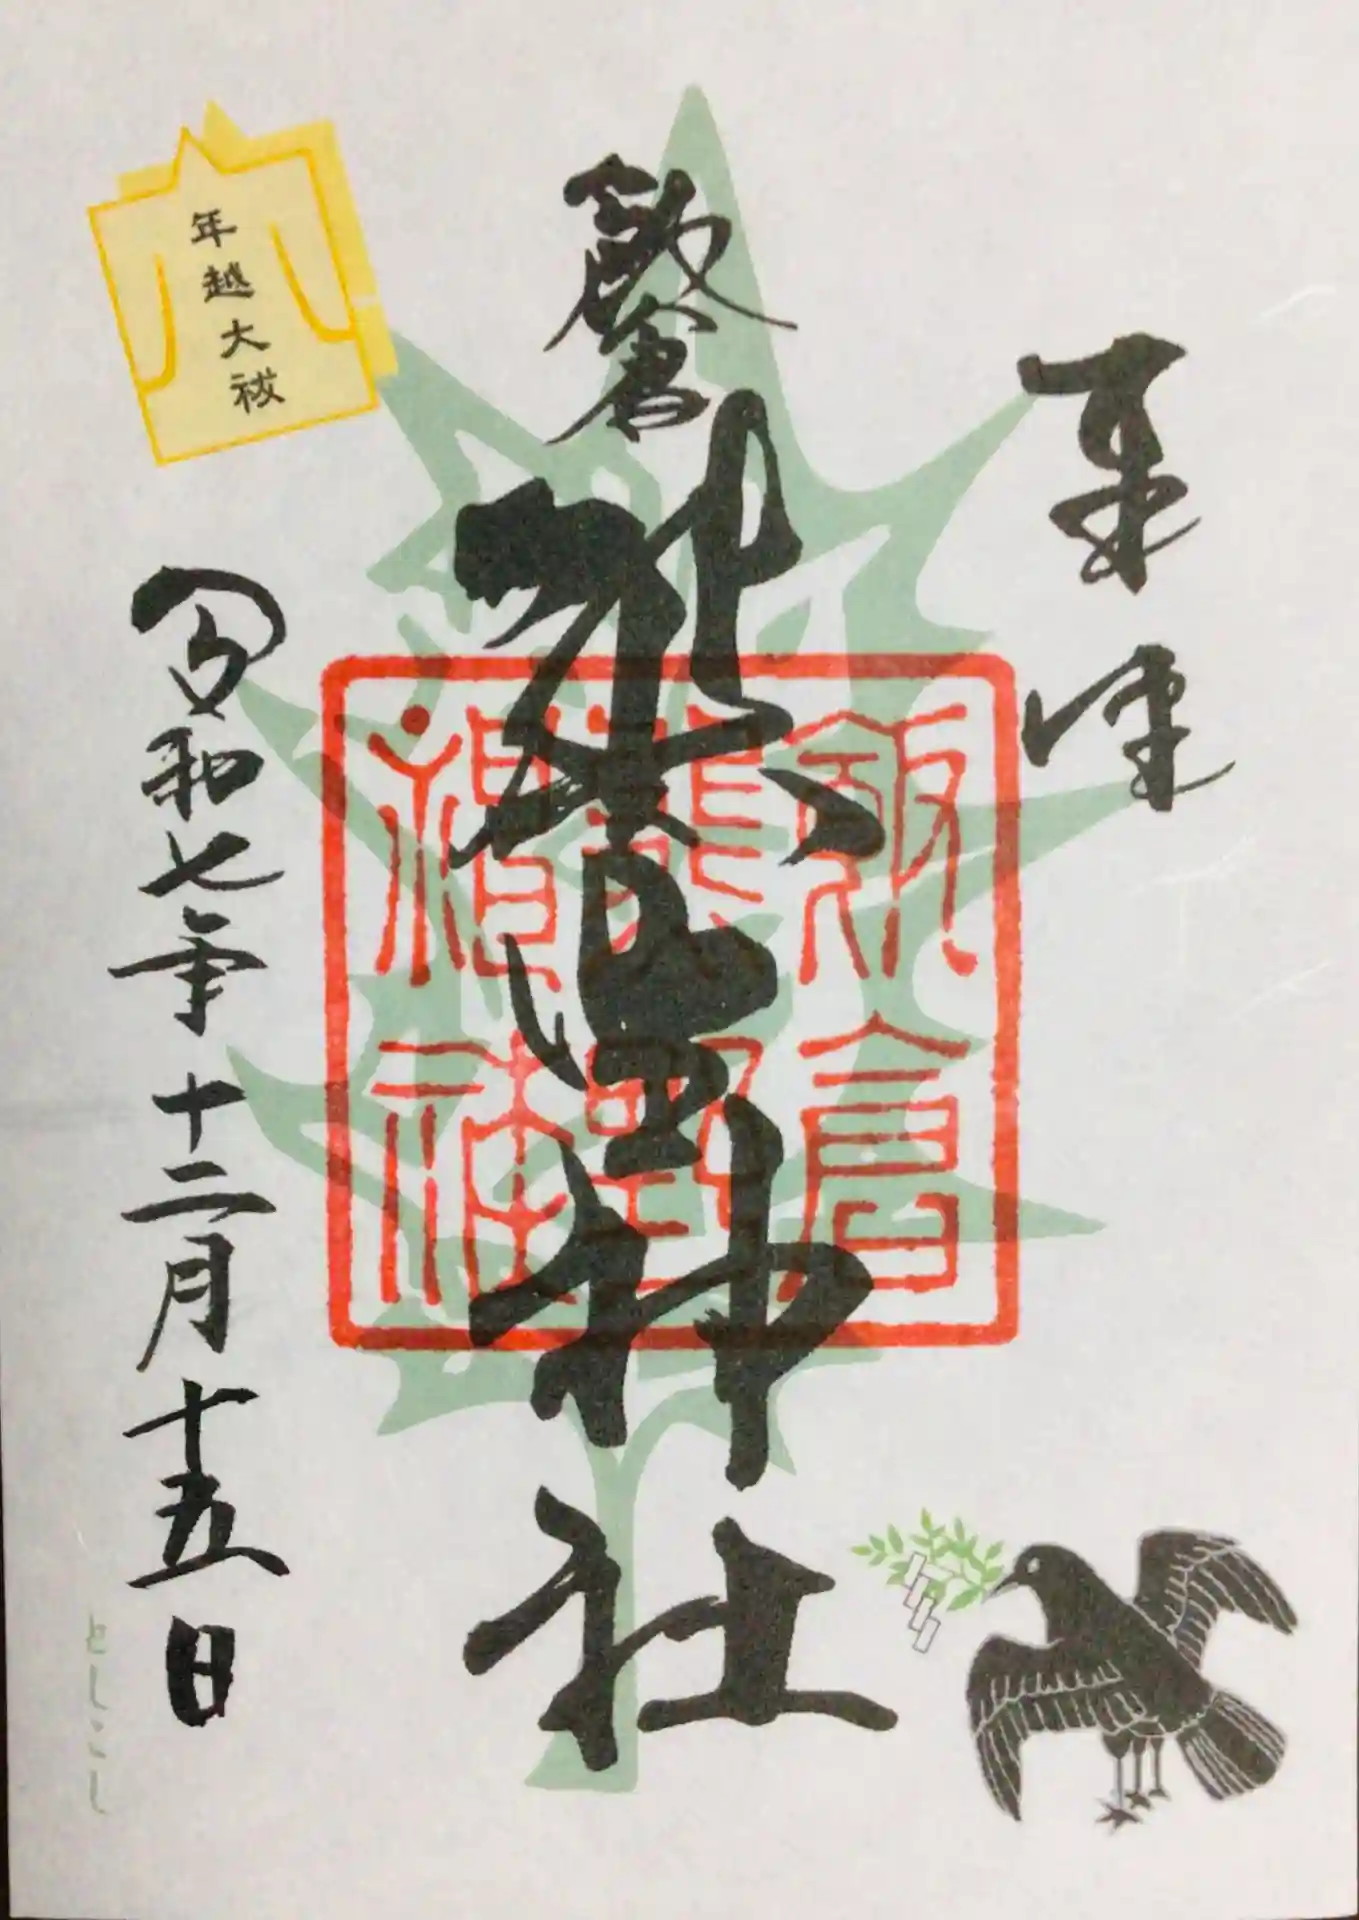 奉拝
飯倉
熊野神社
飯倉
熊野
神社
年越大祓
令和七年十二月十五日
としこし